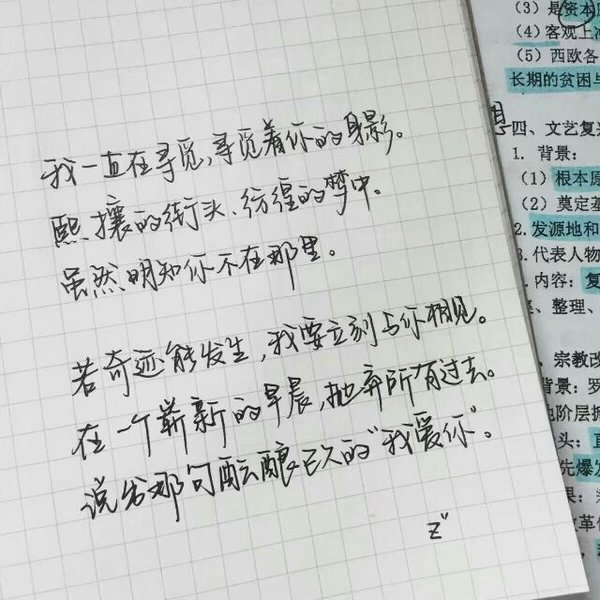 我一直在寻觅,寻觅着你的身影。
熙攘的街头、彷徨的梦中。
虽然明知你不在那里。
若奇迹能发生,我要立刻与你相见。
在一个崭新的早晨,抛弃所有过去。
说出那句酝酿已久的"我爱你"。
z"
(3) 是资本
(4) 客观上
(5) 西欧各
长期的贫困与
四、文艺复兴
1. 背景:
(1) 根本原
(2) 奠定基
2.发源地和
3.代表人物
内容:复
、整理、
宗教改
背景:罗
地阶层
头:
先爆发
果:
改革